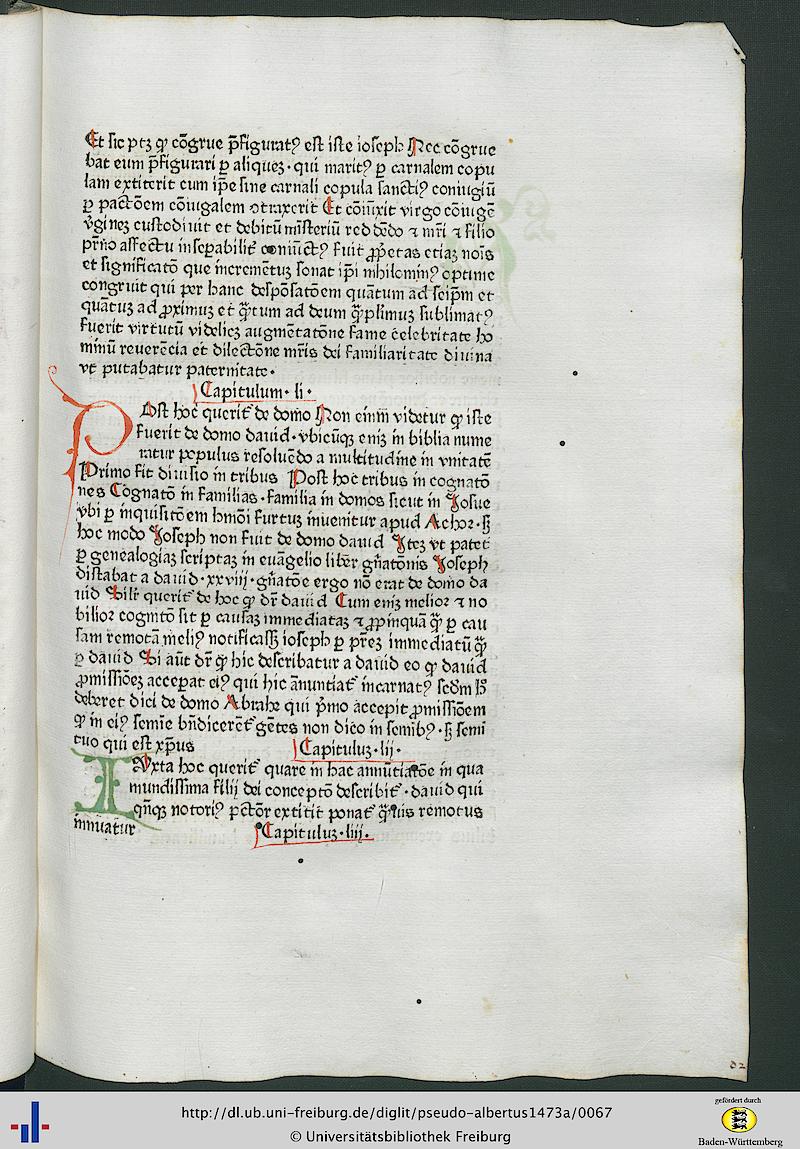 Et sic ptʒ ꝙ cõgrue p̄figuratꝯ est iste ioseph Nec cõgrue
bat eum p̄figurari ꝑ aliqueʒ · qui maritꝯ ꝑ carnalem copu
lam extiterit cum ip̄e sine carnali copula sanctiꝯ coniugiũ
ꝑ pactõem cõiugalem ꝯtraxerit Et cõiũxit virgo cõiugẽ
v̾gineʒ custodiuit et debitũ misteriũ reddẽdo ⁊ mr̄i ⁊ filio
affectu insepabilit̾ coniũctꝯ fuit ꝓp̄etas etiaʒ nois̄
et significatõ que incremẽtuʒ sonat ip̄i nihilominꝯ optime
congruit qui per hanc despõsatõem quãtum ad seip̄m et
quãtuʒ ad ꝓximuʒ et q̃tum ad deum q̃plimuʒ sublimatꝯ
fuerit virtutũ videlicʒ augmẽtatõne fame celebritate ho
minũ reuerẽcia et dilectõne mr̄is dei familiaritate diuina
vt putabatur paternitate ·
Capitulum · li ·
POst hoc querit̾ de domo Non enim videtur ꝙ iste
fuerit de domo dauid · vbicũqʒ eniʒ in biblia nume
ratur populus resoluẽdo a multitudine in vnitatẽ
Primo fit diuisio in tribus Post hoc tribus in cognatõ
nes Cognatõ in familias · familia in domos sicut in Josue
vbi ꝑ inquisitõem hmõi furtuʒ inuenitur apud Achor · sʒ
hoc modo Joseph non fuit de domo dauid Iteʒ vt patet
ꝑ genealogiaʒ scriptaʒ in euãgelio liber gñatõnis Joseph
distabat a dauid · xxviij · gñatõe ergo nõ erat de domo da
uid Silr̄ querit̾ de hoc ꝙ dr̄ dauid Cum eniʒ melior ⁊ no
bilior cognitõ sit ꝑ causaʒ immediataʒ ⁊ ꝓpinquã q̃ ꝑ cau
sam remotã meliꝯ notificassʒ ioseph ꝑ pr̄eʒ immediatũ q̃
ꝑ dauid Si aũt dr̄ ꝙ hic describatur a dauid eo ꝙ dauid
ꝓmissiõeʒ acceperat eiꝯ qui hic ãnuntiat̾ incarnatꝯ scdm̄ h̄
deberet dici de domo Abrahe qui p̄mo accepit ꝓmissiõem
ꝙ in eiꝯ semīe bñdicerẽt̾ gẽtes non dico in semībꝯ · sʒ semi
tuo qui est xp̄us
Capituluʒ · lij ·
IVxta hoc querit̾ quare in hac annũtiatõe in qua
mundissima filij dei conceptõ describit̾ · dauid qui
qñqʒ notoriꝯ pctõr extitit ponat̾ q̃uis remotus
innuatur
Capituluʒ · liij ·
32
http://dl.ub.uni-freiburg.de/diglit/pseudo-albertus1473a/0067
© Universitätsbibliothek Freiburg
gefördert durch
Baden-Württemberg